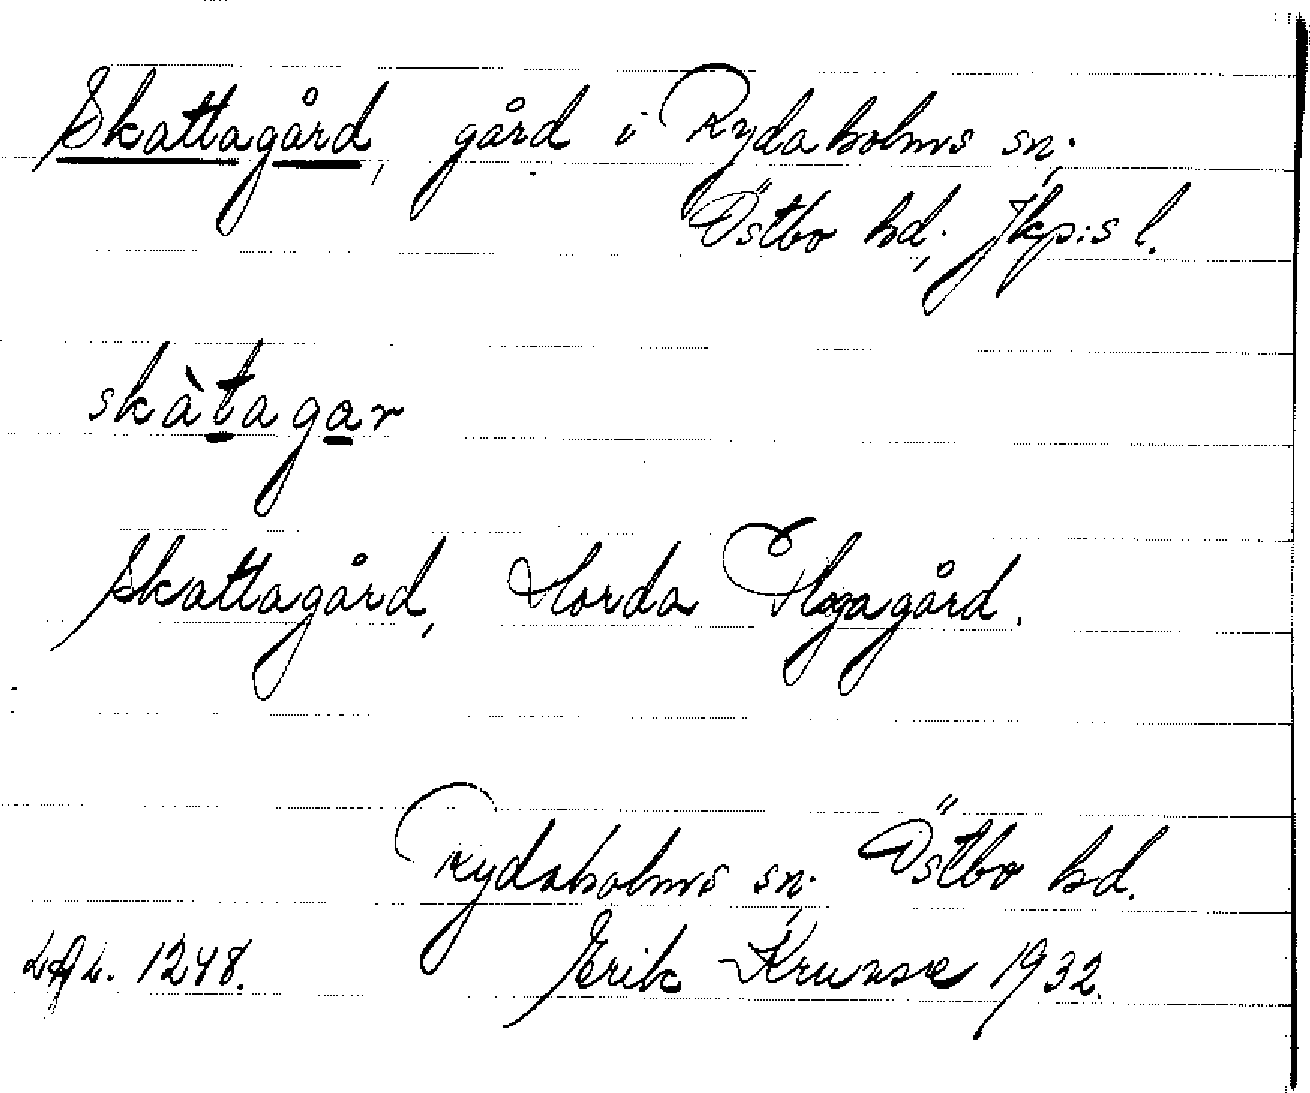 Skattagård, gård i Rydaholms sn,
Östbo hd, Jkp:s l.
skàtagar
Skattagård, Horda Hogagård.
Rydaholms sn, Östbo hd.
1248. Erik Krunse 1932.